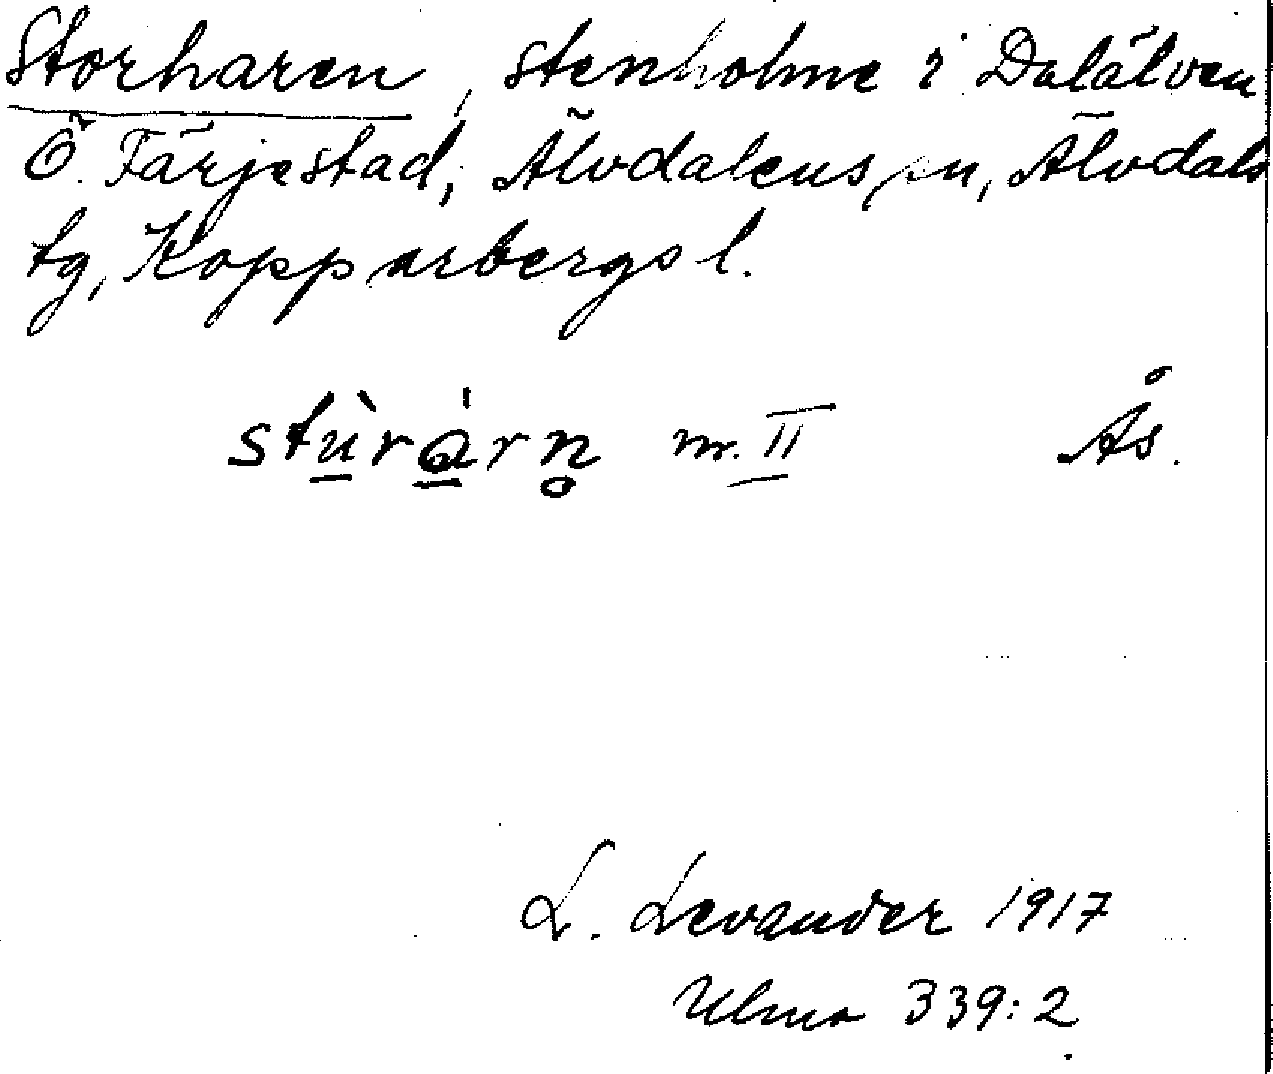 Storharen, stenholme i Dalälven
Ö. Färjestad, Älvdalens sn, Älvdals
tg, Kopparbergs l.
stùrárn̥ m. II Ås.
L. Levander 1917
Ulma 339:2